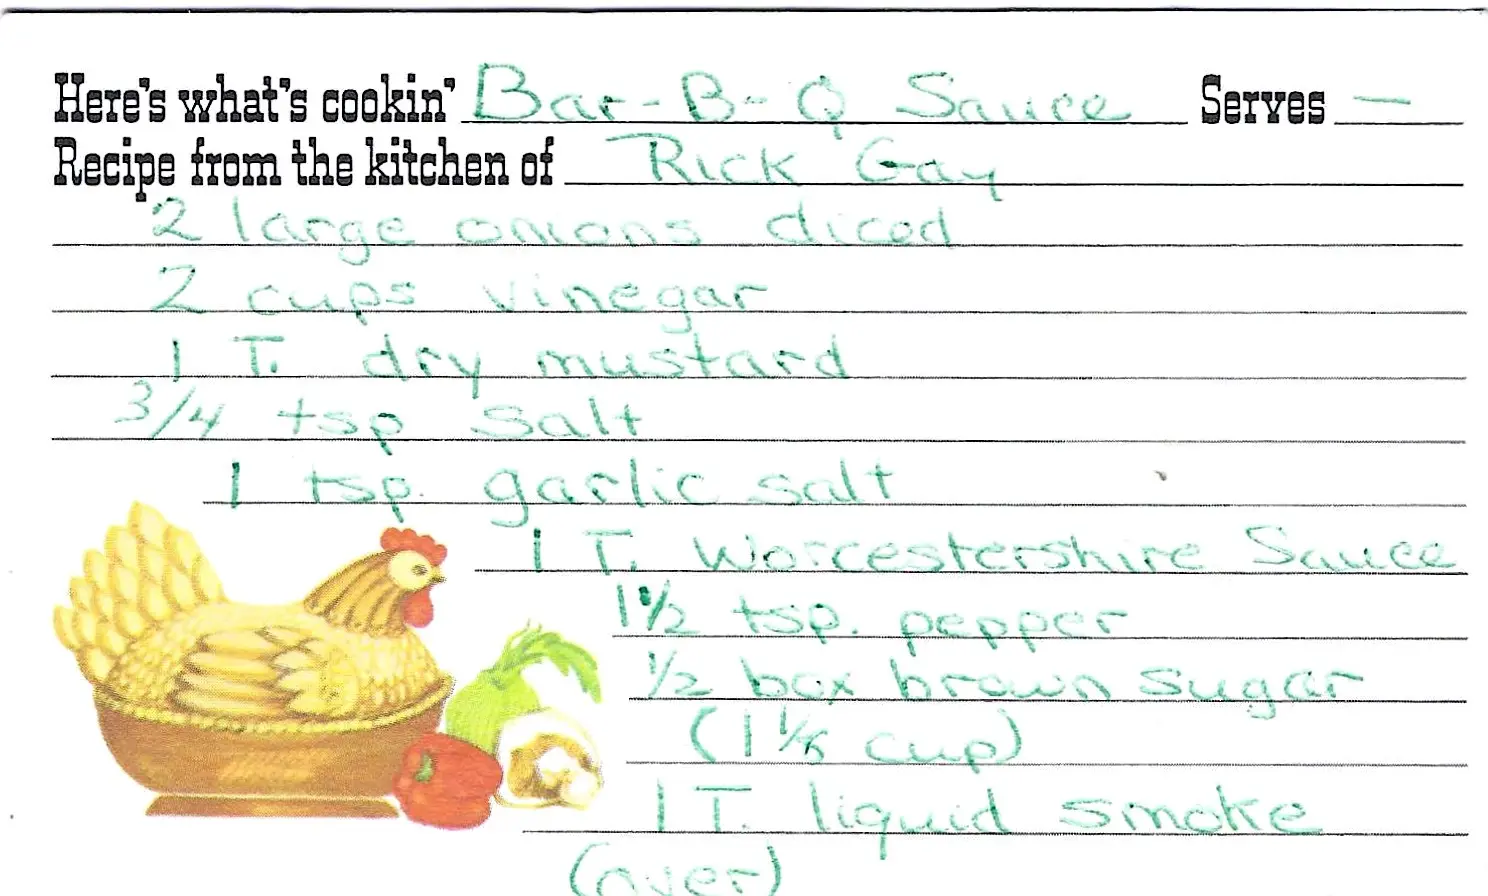 Here's what's cookin' Bar-B-Q Sauce Serves —
Recipe from the kitchen of Rick Gay
2 large onions diced
2 cups vinegar
1 T. dry mustard
3/4 tsp salt
1 tsp. garlic salt
1 T. Worcestershire Sauce
1 1/2 tsp. pepper
1/2 box brown sugar
(1 1/8 cup)
1 T. liquid smoke
(over)